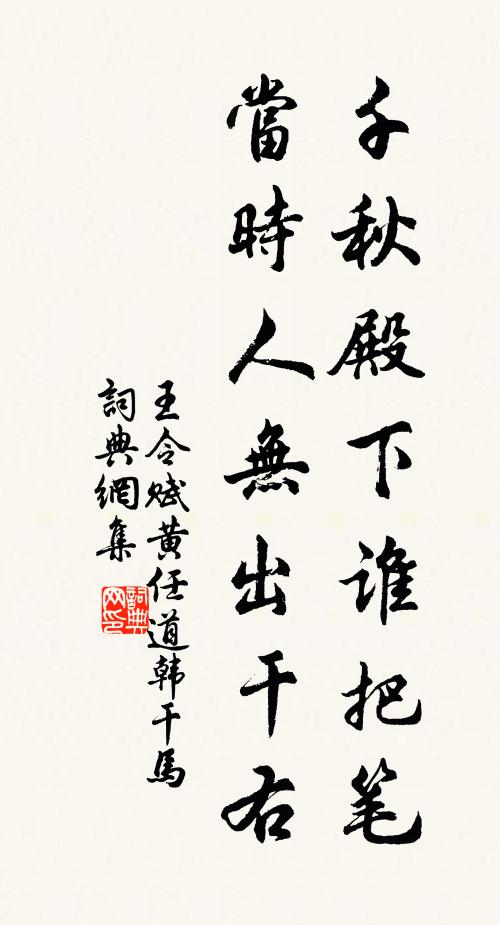 千秋殿下谁把笔
當時人無出干右
王令赋黄任道韩干馬
詞典網集
詞典网印